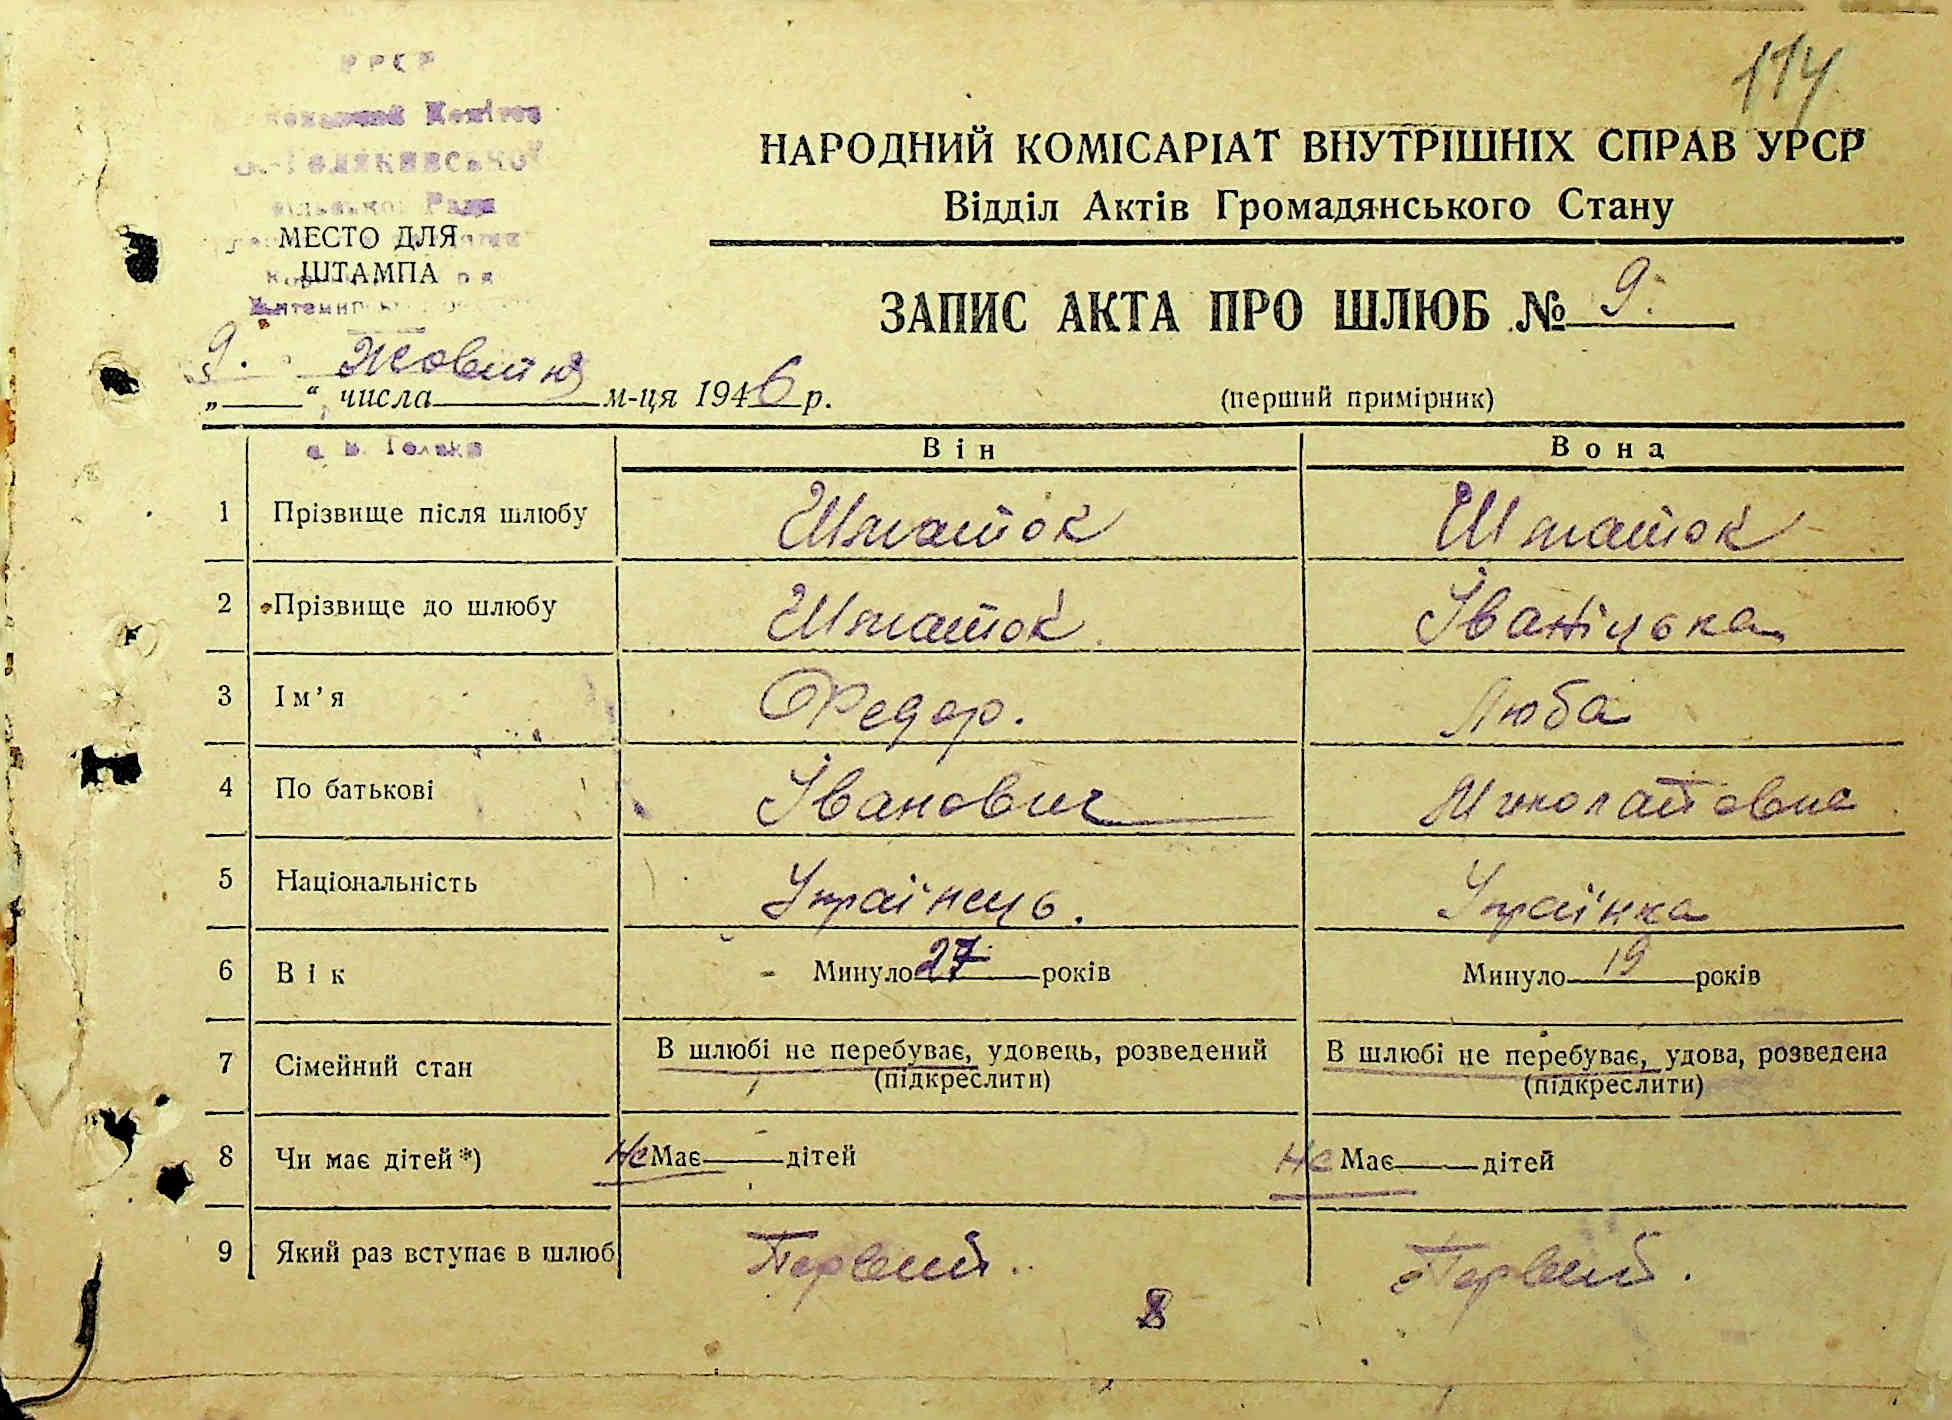 114
УРСР
Комітет
Ради
МЕСТО ДЛЯ
ШТАМПА
НАРОДНИЙ КОМІСАРІАТ ВНУТРІШНІХ СПРАВ УРСР
Відділ Актів Громадянського Стану
ЗАПИС АКТА ПРО ШЛЮБ № 9.
„9.“ числа Жовтня м-ця 1946 р.
(перший примірник)
Він Вона
1 Прізвище після шлюбу Шматок Шматок
2 Прізвище до шлюбу Шматок Іваніцька
3 Ім’я Федор. Люба
4 По батькові Іванович Миколаївна
5 Національність Українець. Українка
6 Вік Минуло 27 років Минуло 19 років
7 Сімейний стан В шлюбі не перебуває, удовець, розведений В шлюбі не перебуває, удова, розведена
(підкреслити) (підкреслити)
8 Чи має дітей*) Не Має дітей Не Має дітей
9 Який раз вступає в шлюб Первий. Первий.